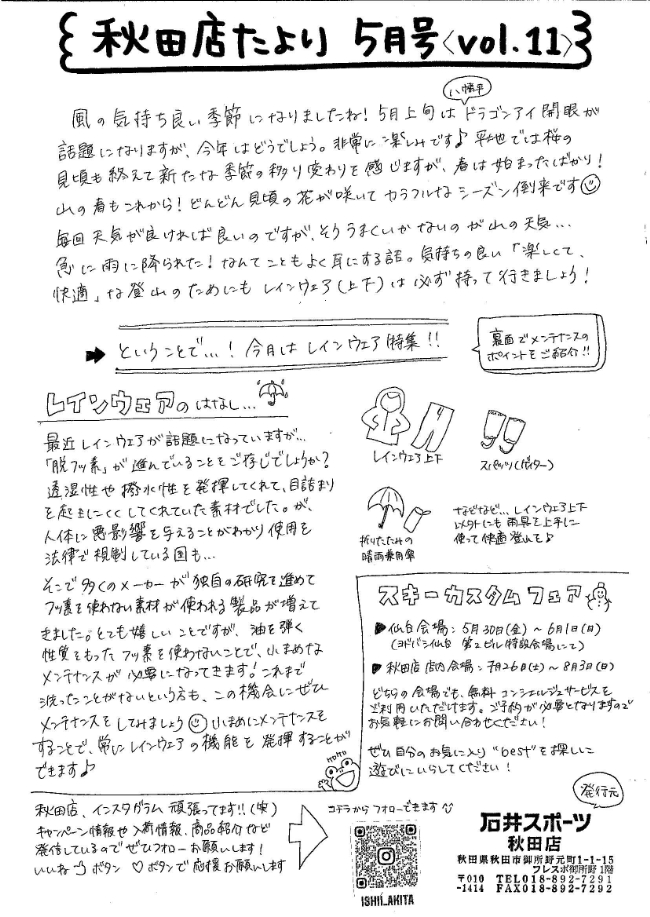 秋田店たより 5月号〈vol.11〉
八幡平
風の気持ち良い季節になりましたね！5月上旬はドラゴンアイ開眼が
話題になりますが、今年はどうでしょう。非常に楽しみです♪平地では桜の
見頃も終えて新たな季節の移り変わりを感じますが、春は始まったばかり！
山の春もこれから！どんどん見頃の花が咲いてカラフルなシーズン到来です
毎回天気が良ければ良いのですが、そううまくいかないのが山の天気…
急に雨に降られた！なんてこともよく耳にする話。気持ちの良い「楽しくて、
快適」な登山のためにもレインウェア(上下)は必ず持って行きましょう！
ということで…！今月はレインウェア特集！！
裏面でメンテナンスの
ポイントをご紹介！！
レインウェアのはなし…
最近レインウェアが話題になっていますが…
「脱フッ素」が進んでいることをご存じでしょうか？
透湿性や撥水性を発揮してくれて、目詰まり
を起こしにくくしてくれていた素材でした。が、
人体に悪影響を与えることがわかり使用を
法律で規制している国も…
そこで多くのメーカーが独自の研究を進めて
フッ素を使わない素材が使われる製品が増えて
きました。とても嬉しいことですが、油を弾く
性質をもったフッ素を使わないことで、小まめな
メンテナンスが必要になってきます！これまで
洗ったことがないという方も、この機会にぜひ
メンテナンスをしてみましょう 小まめにメンテナンスを
することで、常にレインウェアの機能を発揮することが
できます♪
レインウェア上下
スパッツ(ゲイター)
折りたたみの
晴雨兼用傘
などなど…レインウェア上下
以外にも雨具を上手に
使って快適登山を♪
スキーカスタムフェア
▶仙台会場：5月30日(金)～6月1日(日)
(ヨドバシ仙台 第2ビル特設会場にて)
▶秋田店店内会場：7月26日(土)～8月3日(日)
どちらの会場でも、無料コンシェルジュサービスを
ご利用いただけます。ご予約が必要となりますので
お気軽にお問い合わせください！
ぜひ自分のお気に入り"best"を探しに
遊びにいらしてください！
秋田店、インスタグラム頑張ってます！！(笑)
キャンペーン情報や入荷情報、商品紹介など
発信しているのでぜひフォローお願いします！
いいねボタン ♡ボタンで応援お願いします
コチラからフォローできます
ISHII_AKITA
発行元
石井スポーツ
秋田店
秋田県秋田市御所野元町1-1-15
フレスポ御所野1階
〒010 TEL018-892-7291
-1414 FAX018-892-7292